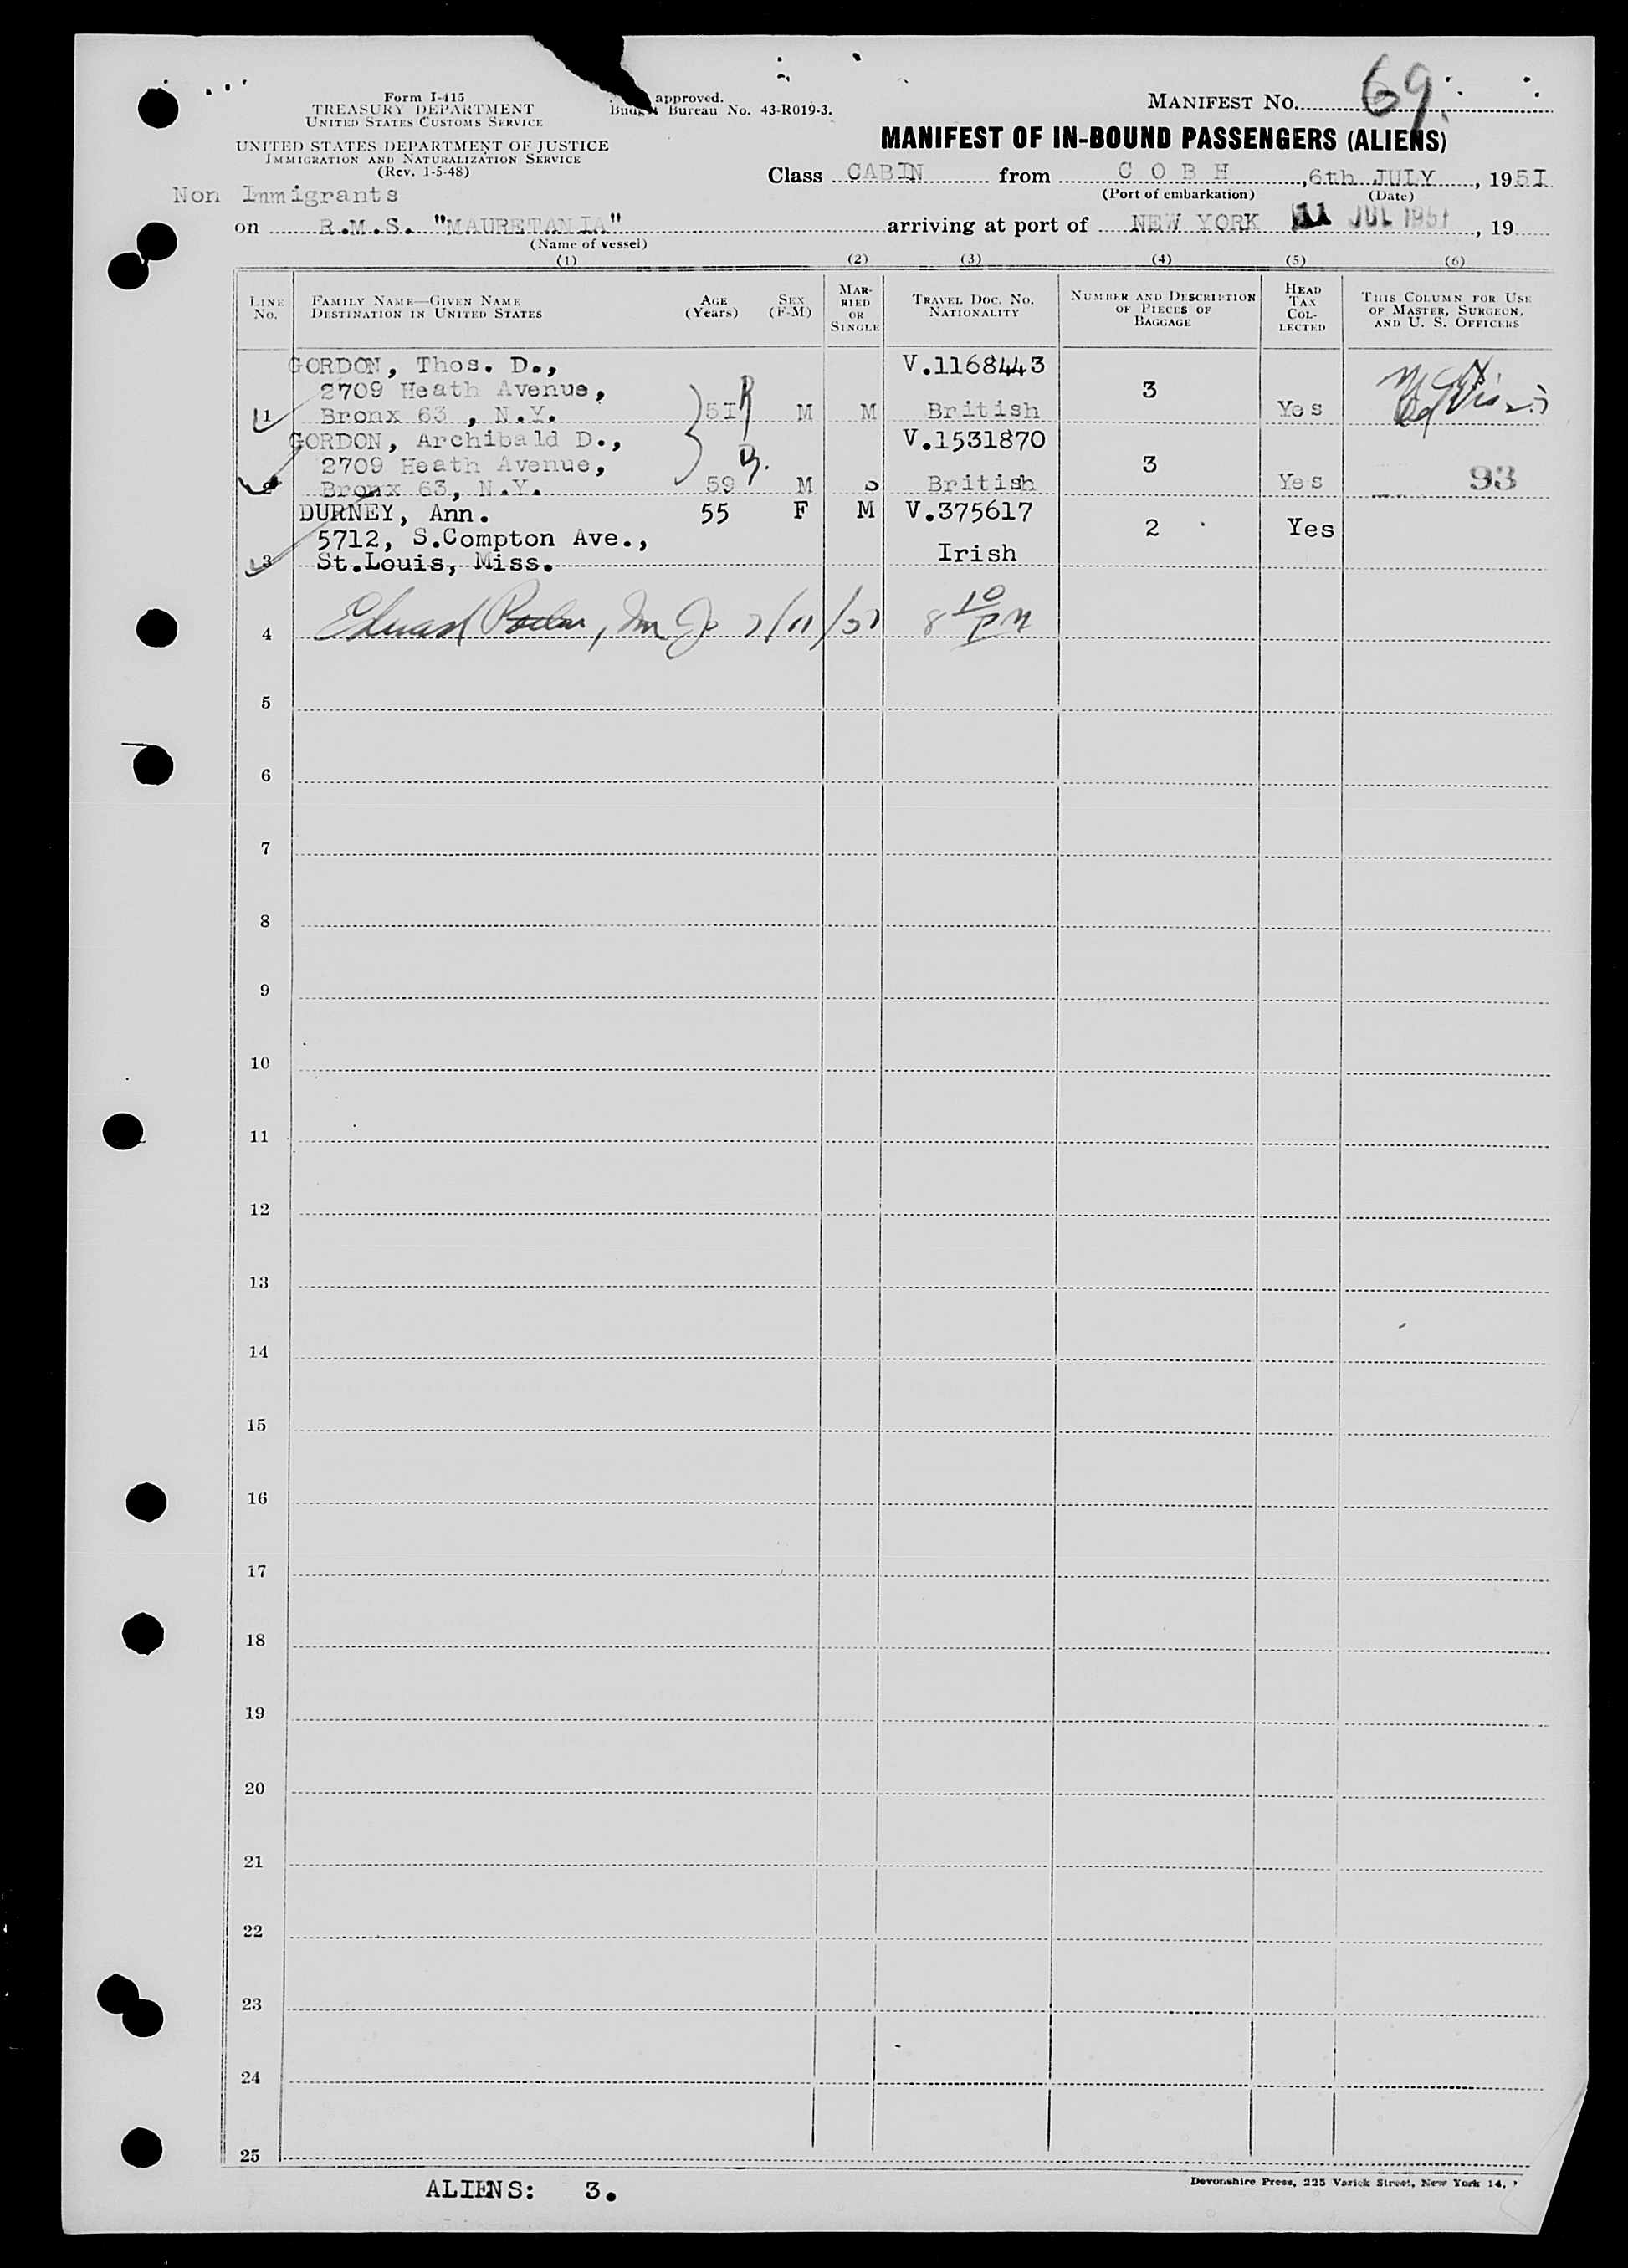 Form I-415
TREASURY DEPARTMENT
UNITED STATES CUSTOMS SERVICE
UNITED STATES DEPARTMENT OF JUSTICE
IMMIGRATION AND NATURALIZATION SERVICE
(Rev. 1-5-48)
approved.
Bureau No. 43-R019-3.
MANIFEST NO. 69.
MANIFEST OF IN-BOUND PASSENGERS (ALIENS)
Class CABIN from C O B H, 6th JULY, 195I
(Port of embarkation) (Date)
Non Immigrants
on R.M.S. "MAURETANIA" arriving at port of NEW YORK 11 JUL 1951, 19
(Name of vessel)
(1) (2) (3) (4) (5) (6)
LINE NO.
FAMILY NAME—GIVEN NAME
DESTINATION IN UNITED STATES
AGE (Years)
SEX (F-M)
MARRIED OR SINGLE
TRAVEL DOC. NO.
NATIONALITY
NUMBER AND DESCRIPTION OF PIECES OF BAGGAGE
HEAD TAX COLLECTED
THIS COLUMN FOR USE OF MASTER, SURGEON, AND U. S. OFFICERS
GORDON, Thos. D., V.1168443
2709 Heath Avenue, 3
1 Bronx 63 , N.Y. 5I M M British Yes
GORDON, Archibald D., V.1531870
2709 Heath Avenue, 3
2 Bronx 63, N.Y. 59 M S British Yes 93
DURNEY, Ann. 55 F M V.375617
5712, S.Compton Ave., 2 Yes
3 St.Louis, Miss. Irish
4 Edward 7/11/51 8 10 PM
5
6
7
8
9
10
11
12
13
14
15
16
17
18
19
20
21
22
23
24
25
ALIENS: 3.
Devonshire Press, 225 Varick Street, New York 14,